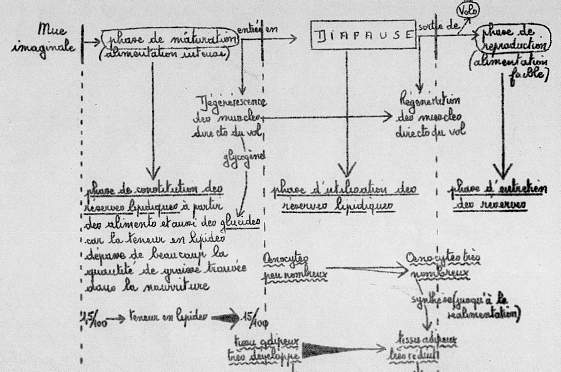 Mue
imaginale
phase de maturation
(alimentation intense)
entrée en
DIAPAUSE
sortie de
Vols
phase de
reproduction
(alimentation
faible)
Dégénérescence
des muscles
directs du vol
Régénération
des muscles
directs du vol
glycogène
phase de constitution des
réserves lipidiques à partir
des aliments et aussi des glucides
car la teneur en lipides
dépasse de beaucoup la
quantité de graisse trouvée
dans la nourriture
phase d'utilisation des
réserves lipidiques
phase d'entretien
des réserves
Œnocytes
peu nombreux
Œnocytes très
nombreux
synthèse (jusqu'à la
réalimentation)
teneur en lipides
15/100
tissu adipeux
très développé
tissu adipeux
très réduit